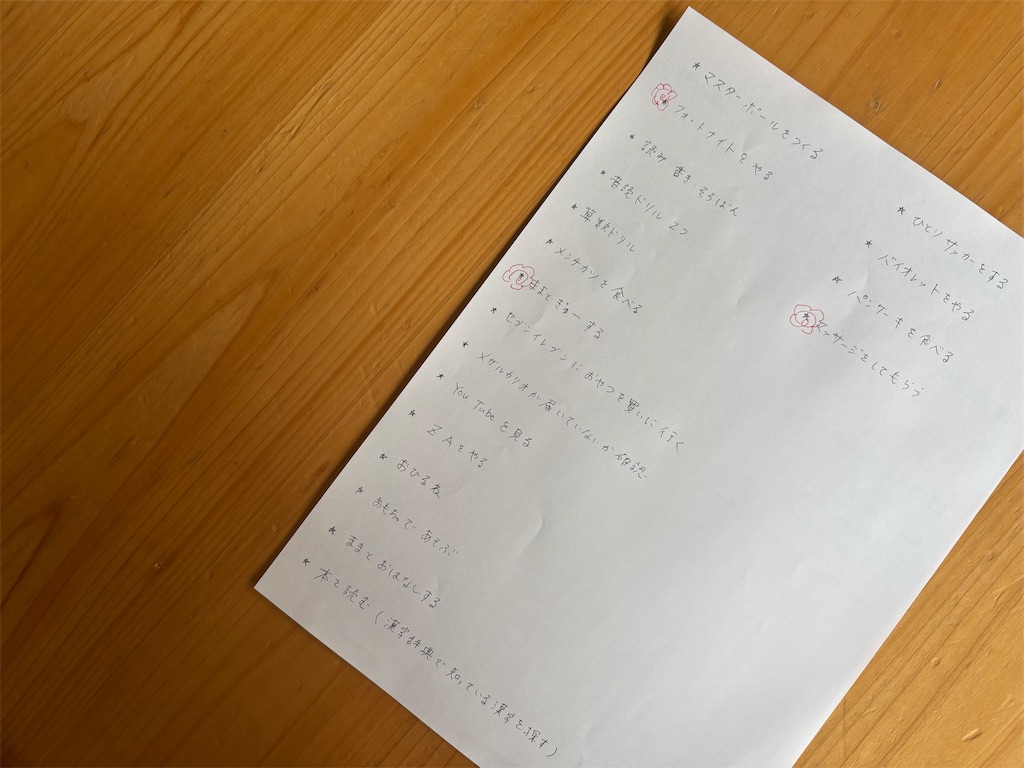 ★ マスターボールをつくる
★ フォートナイトをやる
★ 読み書きそろばん
★ 音読ドリル 2つ
★ 算数ドリル
★ メンチカツを食べる
★ ままとぎゅーする
★ セブンイレブンにおやつを買いに行く
★ メガルカリオが届いていないか確認
★ YouTubeを見る
★ ZAをやる
★ おひる寝
★ おもちゃであそぶ
★ ままとおはなしする
★ 本を読む(漢字辞典で知っている漢字を探す)
★ ひとりサッカーをする
★ バイオレットをやる
★ パンケーキを食べる
★ マッサージをしてもらう